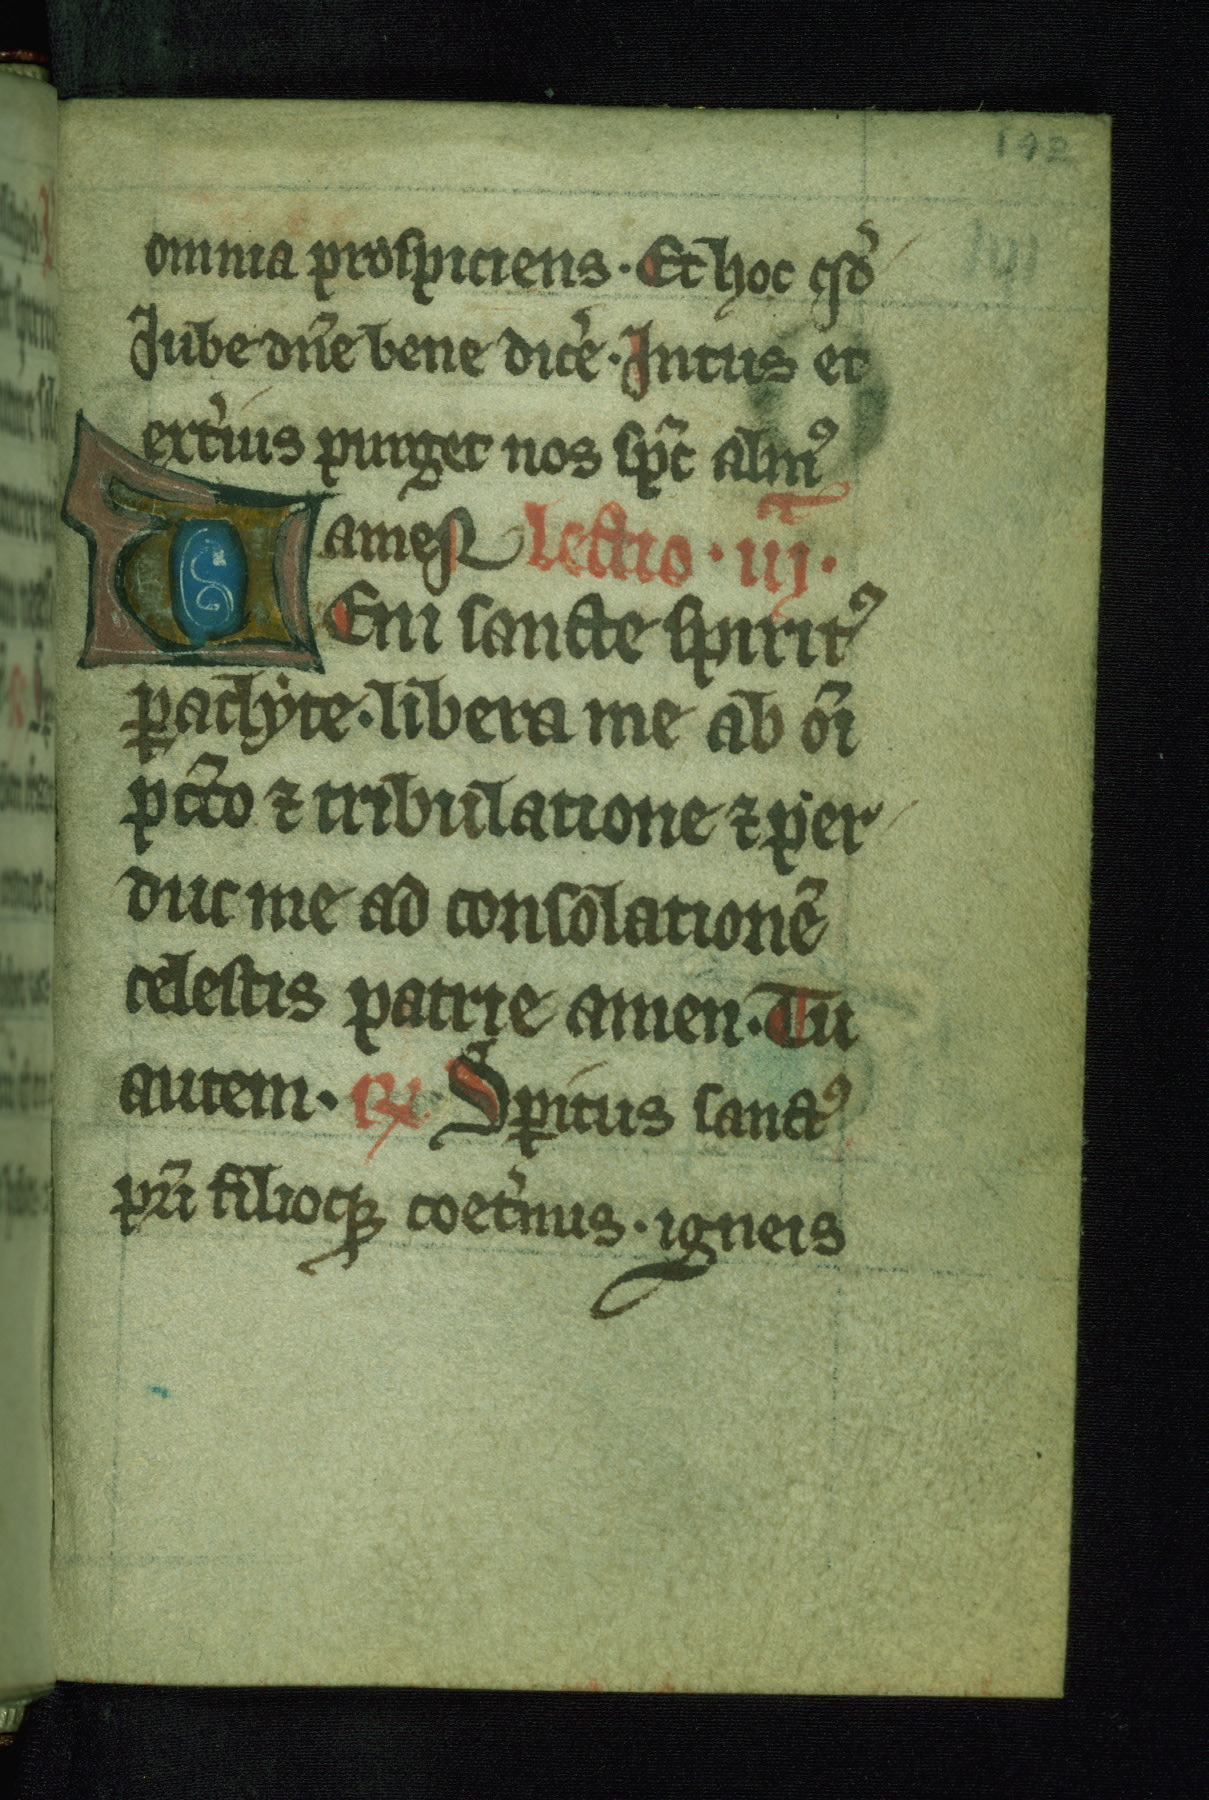 142
omnia prospiciens. Et hoc qd̓
Jube dn̄e bene dic̓e. Intus et
ext̓ius purget nos sp̄c almꝰ
amen Lectio. iij.
VEni sancte spiritꝰ
paclyte. libera me ab om̄i
pcc̄o ⁊ tribulatione ⁊ per
duc me ad consolationē
celestis patrie amen. Tu
autem. ℞. Spiritus sanctꝰ
pr̄i filioqꝫ coet̓nus. igneis